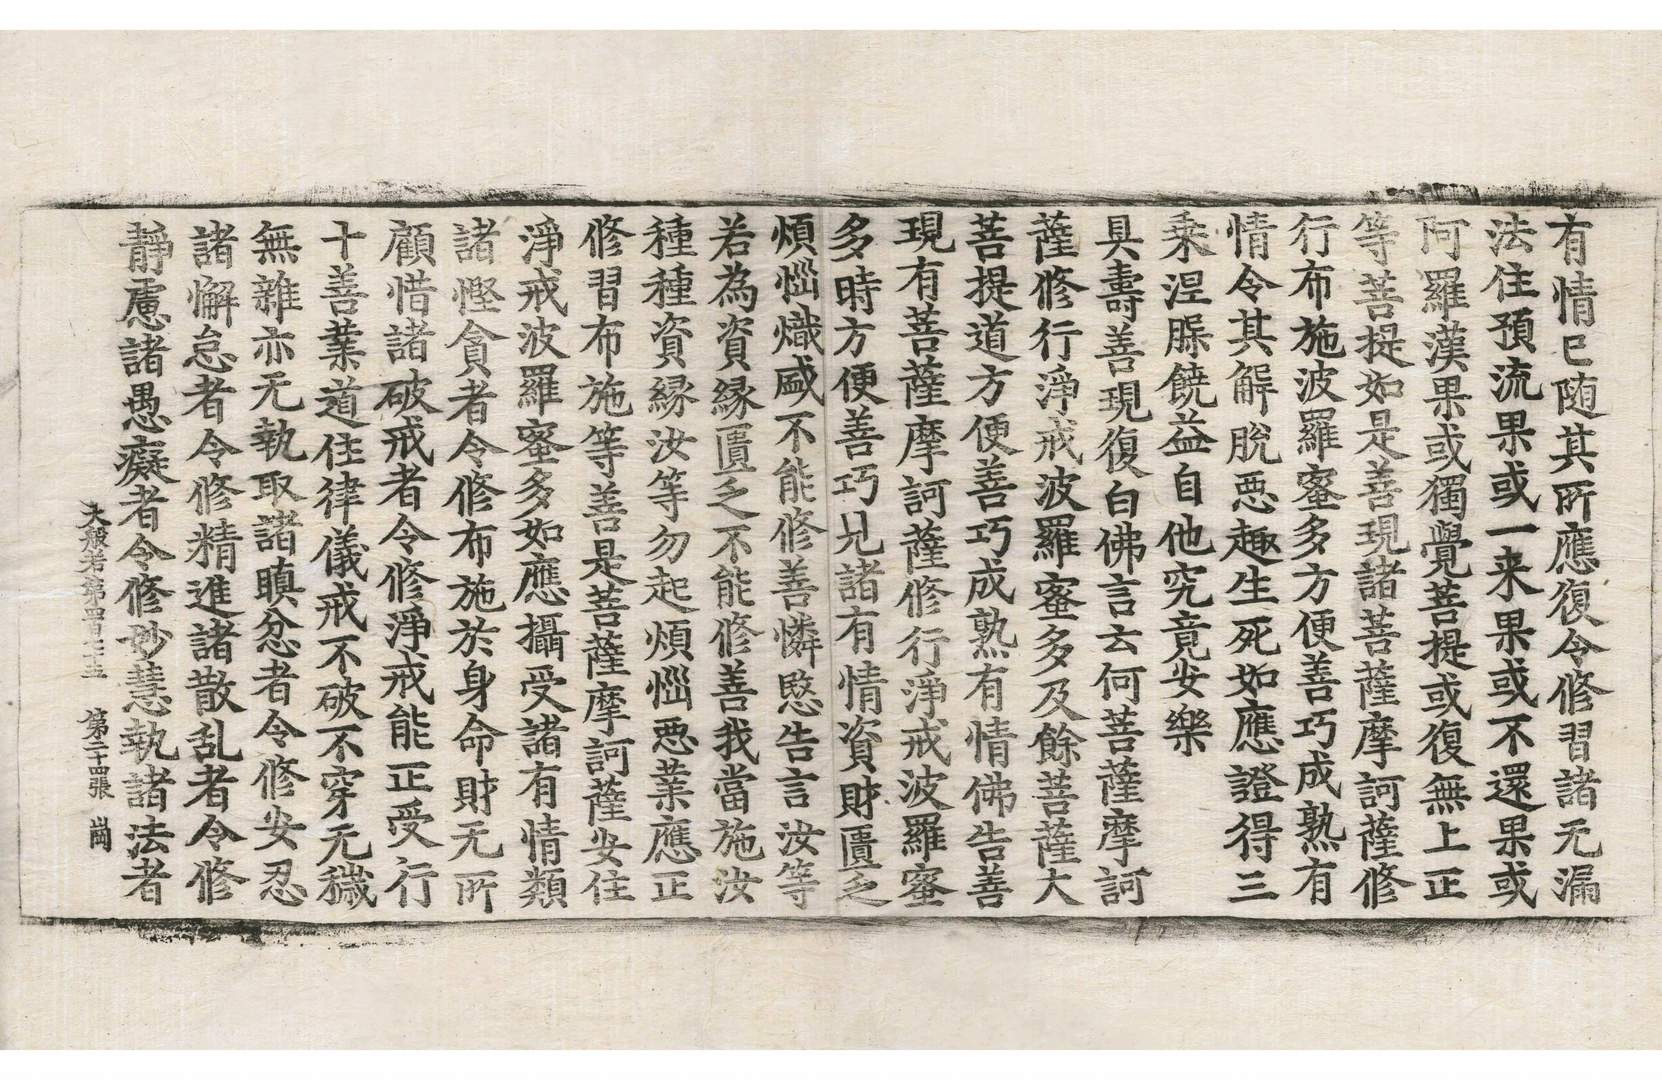 有情已随其所應復令修習諸无漏
法住預流果或一来果或不還果或
阿羅漢果或獨覺菩提或復無上正
等菩提如是善現諸菩薩摩訶薩修
行布施波羅蜜多方便善巧成熟有
情令其解脫惡趣生死如應證得三
乘涅槃饒益自他究竟安樂
具壽善現復白佛言云何菩薩摩訶
薩修行淨戒波羅蜜多及餘菩薩大
菩提道方便善巧成熟有情佛告善
現有菩薩摩訶薩修行淨戒波羅蜜
多時方便善巧見諸有情資財匱乏
煩惱熾盛不能修善憐愍告言汝等
若為資緣匱乏不能修善我當施汝
種種資緣汝等勿起煩惱惡業應正
修習布施等善是菩薩摩訶薩安住
淨戒波羅蜜多如應攝受諸有情類
諸慳貪者令修布施於身命財无所
顧惜諸破戒者令修淨戒能正受行
十善業道住律儀戒不破不穿无穢
無雜亦无執取諸瞋忿者令修安忍
諸懈怠者令修精進諸散乱者令修
靜慮諸愚癡者令修妙慧執諸法者
大般若第四百七十五 第二十四張 崗